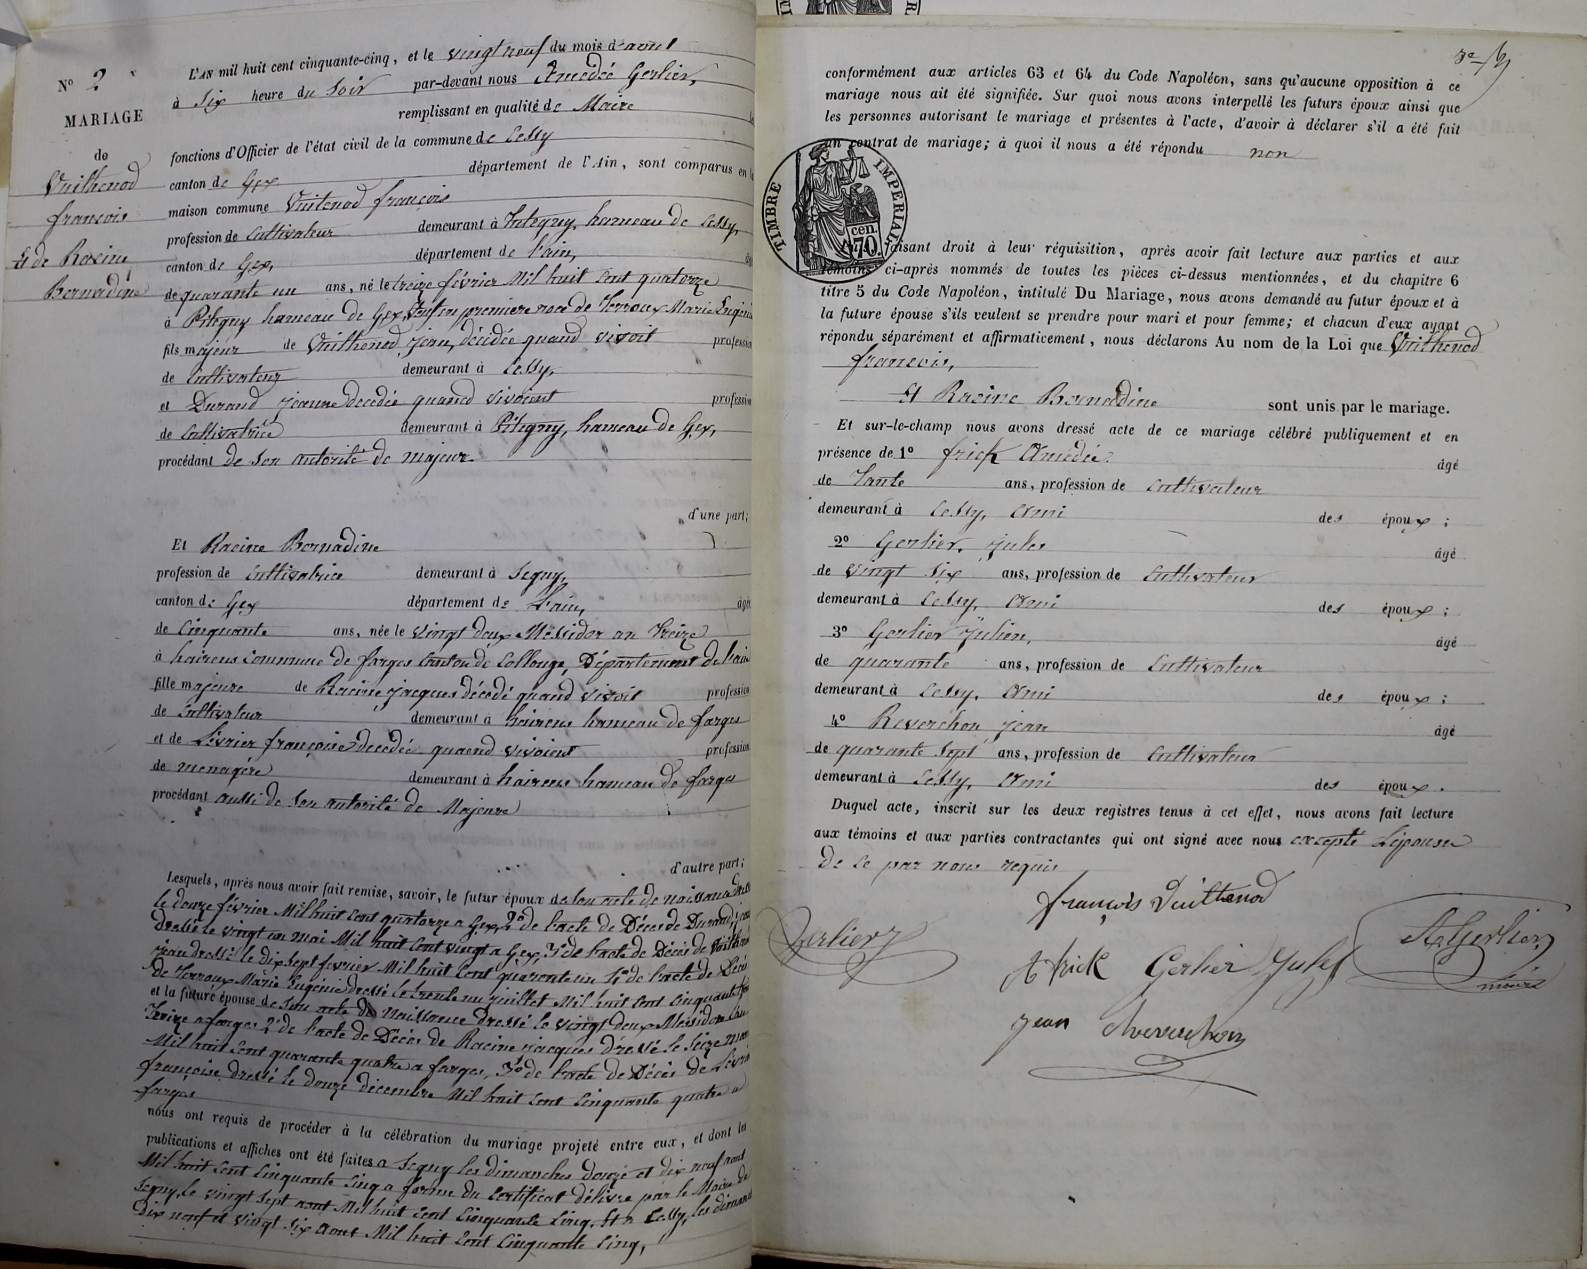 N° 2
MARIAGE
de
Vuithenod
françois
Et de Racine
Bernadine
L'AN mil huit cent cinquante-cinq, et le vingt neuf du mois d'aout
à Six heure du Soir par-devant nous Amedée Gerlier,
remplissant en qualité de Maire
fonctions d'Officier de l'état civil de la commune de Cessy
canton de Gex département de l'Ain, sont comparus en
maison commune Vuitenod françois
profession de Cultivateur demeurant à hameau de Cessy,
canton de Gex, département de l'ain,
de quarante un ans, né le treize février Mil huit Cent quatorze
à Pitegny hameau de Gex premiere noce de Terroux Marie
fils majeur de Vuithenod Jean, décédée quand vivoit profession
de Cultivateur demeurant à Cessy,
et Durand jeanne decedée quand vivoient profession
de Cultivatrice demeurant à Pitegny, hameau de Gex,
procédant de Son autorité de majeur
d'une part;
Et Racine Bernadine
profession de Cultivatrice demeurant à Segny,
canton de Gex département de L'ain, âgée
de Cinquante ans, née le vingt deux Messidor an Treize
à hairens Commune de farges Canton de Collonge, Département de l'ain
fille majeure de Racine jacques décédé quand vivoit profession
de Cultivateur demeurant à hairens hameau de farges
et de Lévrier françoise decedée quaend vivoient profession
de menagére demeurant à hairens hameau de farges
procédant aussi de Son autorité de Majeure
d'autre part;
Lesquels, après nous avoir fait remise, savoir, le futur époux de son acte de naissance
le douze février Mil huit Cent quatorze a Gex, 2° de l'acte de Décès de Durand
Dressé le vingt un mai Mil huit Cent vingt a Gex, 3° de l'acte de Décès de
jean dressé le dix Sept fevrier Mil huit Cent quarente un 4° de l'acte de Décès
de Terroux Marie Eugénie dressé le trente un juillet Mil huit Cent Cinquante
et la future épouse de Son acte de Naissance dressé le vingt deux Messidor
Treize a farges 2° de l'acte de Décès de Racine jacques dressé le Seize
Mil huit Cent quarante quatre a farges, 3° de l'acte de Décès de
françoise dressé le douze décembre Mil huit Cent Cinquante quatre a
farges
nous ont requis de procéder à la célébration du mariage projeté entre eux, et dont les
publications et affiches ont été faites a Segny les dimanches douze et dix neuf aout
Mil huit Cent Cinquante Cinq a forme du Certificat délivré par le Maire de
Segny, le vingt Sept aout Mil huit Cent Cinquante Cinq. Et a Cessy, les
Dix neuf et vingt Six Aout Mil huit Cent Cinquante Cinq,
conformément aux articles 63 et 64 du Code Napoléon, sans qu'aucune opposition à ce
mariage nous ait été signifiée. Sur quoi nous avons interpellé les futurs époux ainsi que
les personnes autorisant le mariage et présentes à l'acte, d'avoir à déclarer s'il a été fait
un contrat de mariage; à quoi il nous a été répondu non
TIMBRE IMPERIAL
cen.
70
faisant droit à leur réquisition, après avoir fait lecture aux parties et aux
témoins ci-après nommés de toutes les pièces ci-dessus mentionnées, et du chapitre 6
titre 5 du Code Napoléon, intitulé Du Mariage, nous avons demandé au futur époux et à
la future épouse s'ils veulent se prendre pour mari et pour femme; et chacun d'eux ayant
répondu séparément et affirmativement, nous déclarons Au nom de la Loi que Vuithenod
francois,
Et Racine Bernadine sont unis par le mariage.
Et sur-le-champ nous avons dressé acte de ce mariage célébré publiquement et en
présence de 1° frick Amedée âgé
de Tante ans, profession de Cultivateur
demeurant à Cessy, Ami des époux;
2° Gerlier, jules âgé
de vingt Six ans, profession de Cultivateur
demeurant à Cessy, Ami des époux;
3° Gerlier Julien, âgé
de quarante ans, profession de Cultivateur
demeurant à Cessy, Ami des époux;
4° Reverchon jean âgé
de quarante Sept ans, profession de Cultivateur
demeurant à Cessy, Ami des époux.
Duquel acte, inscrit sur les deux registres tenus à cet effet, nous avons fait lecture
aux témoins et aux parties contractantes qui ont signé avec nous excepté L'épouse
de ce par nous requis
françois Vuithenod
Gerlier J
A frick Gerlier Jules
Az Gerlier
maire
jean Reverchon